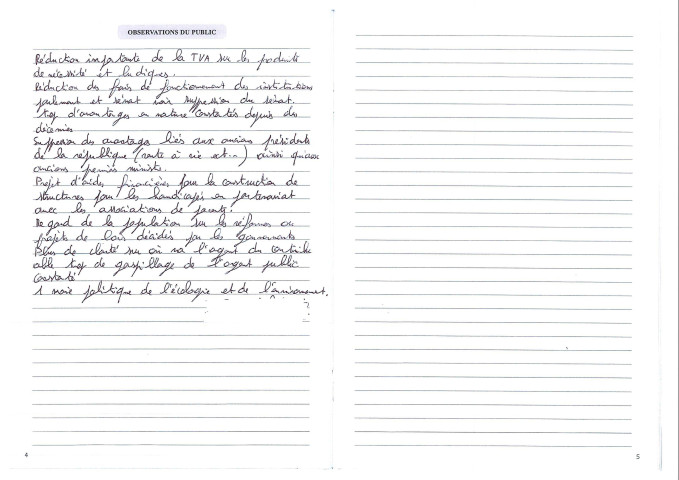 OBSERVATIONS DU PUBLIC
Réduction importante de la TVA sur les produits
de nécessité et ludiques.
Réduction des frais de fonctionement des institutions
parlement et sénat voir suppression du sénat.
trop d'avantages en nature constatés depuis des
décennies
Suppression des avantages liés aux anciens présidents
de la république (rente à vie ect...) ainsi qu'aux
anciens premier ministre.
Projet d'aides financières pour la construction de
structures pour les handicapés en partenariat
avec les associations de parents.
Regard de la population sur les réformes ou
projets de lois décidés par les gouvernements
Plus de clarté sur où va l'argent du contribu
able trop de gaspillage de l'argent public
constaté
1 vraie politique de l'écologie et de l'environement.
4
5